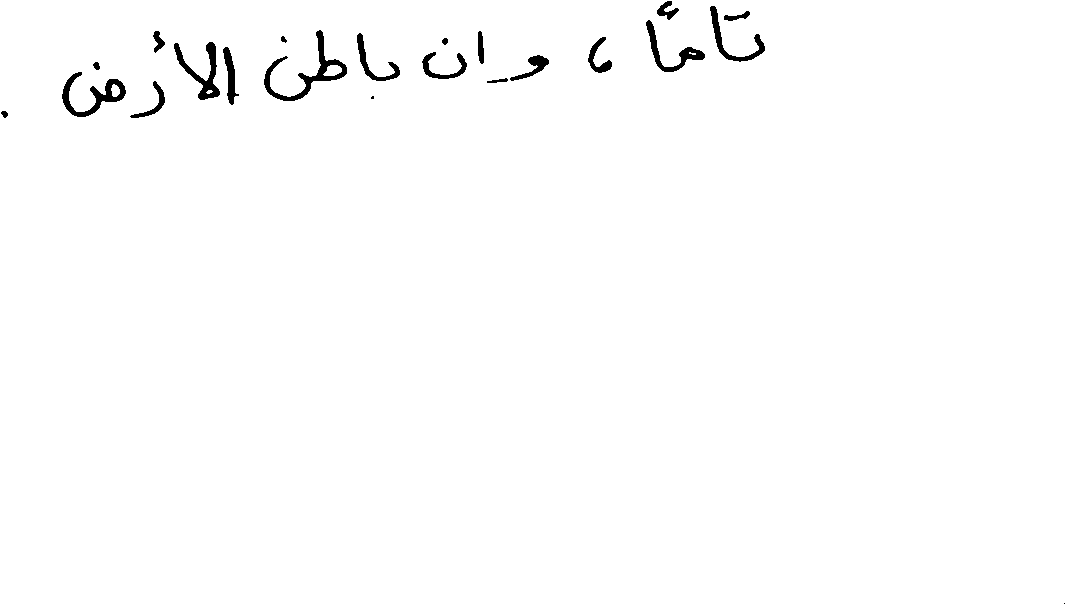 تاماً ، وان باطن الأرض .